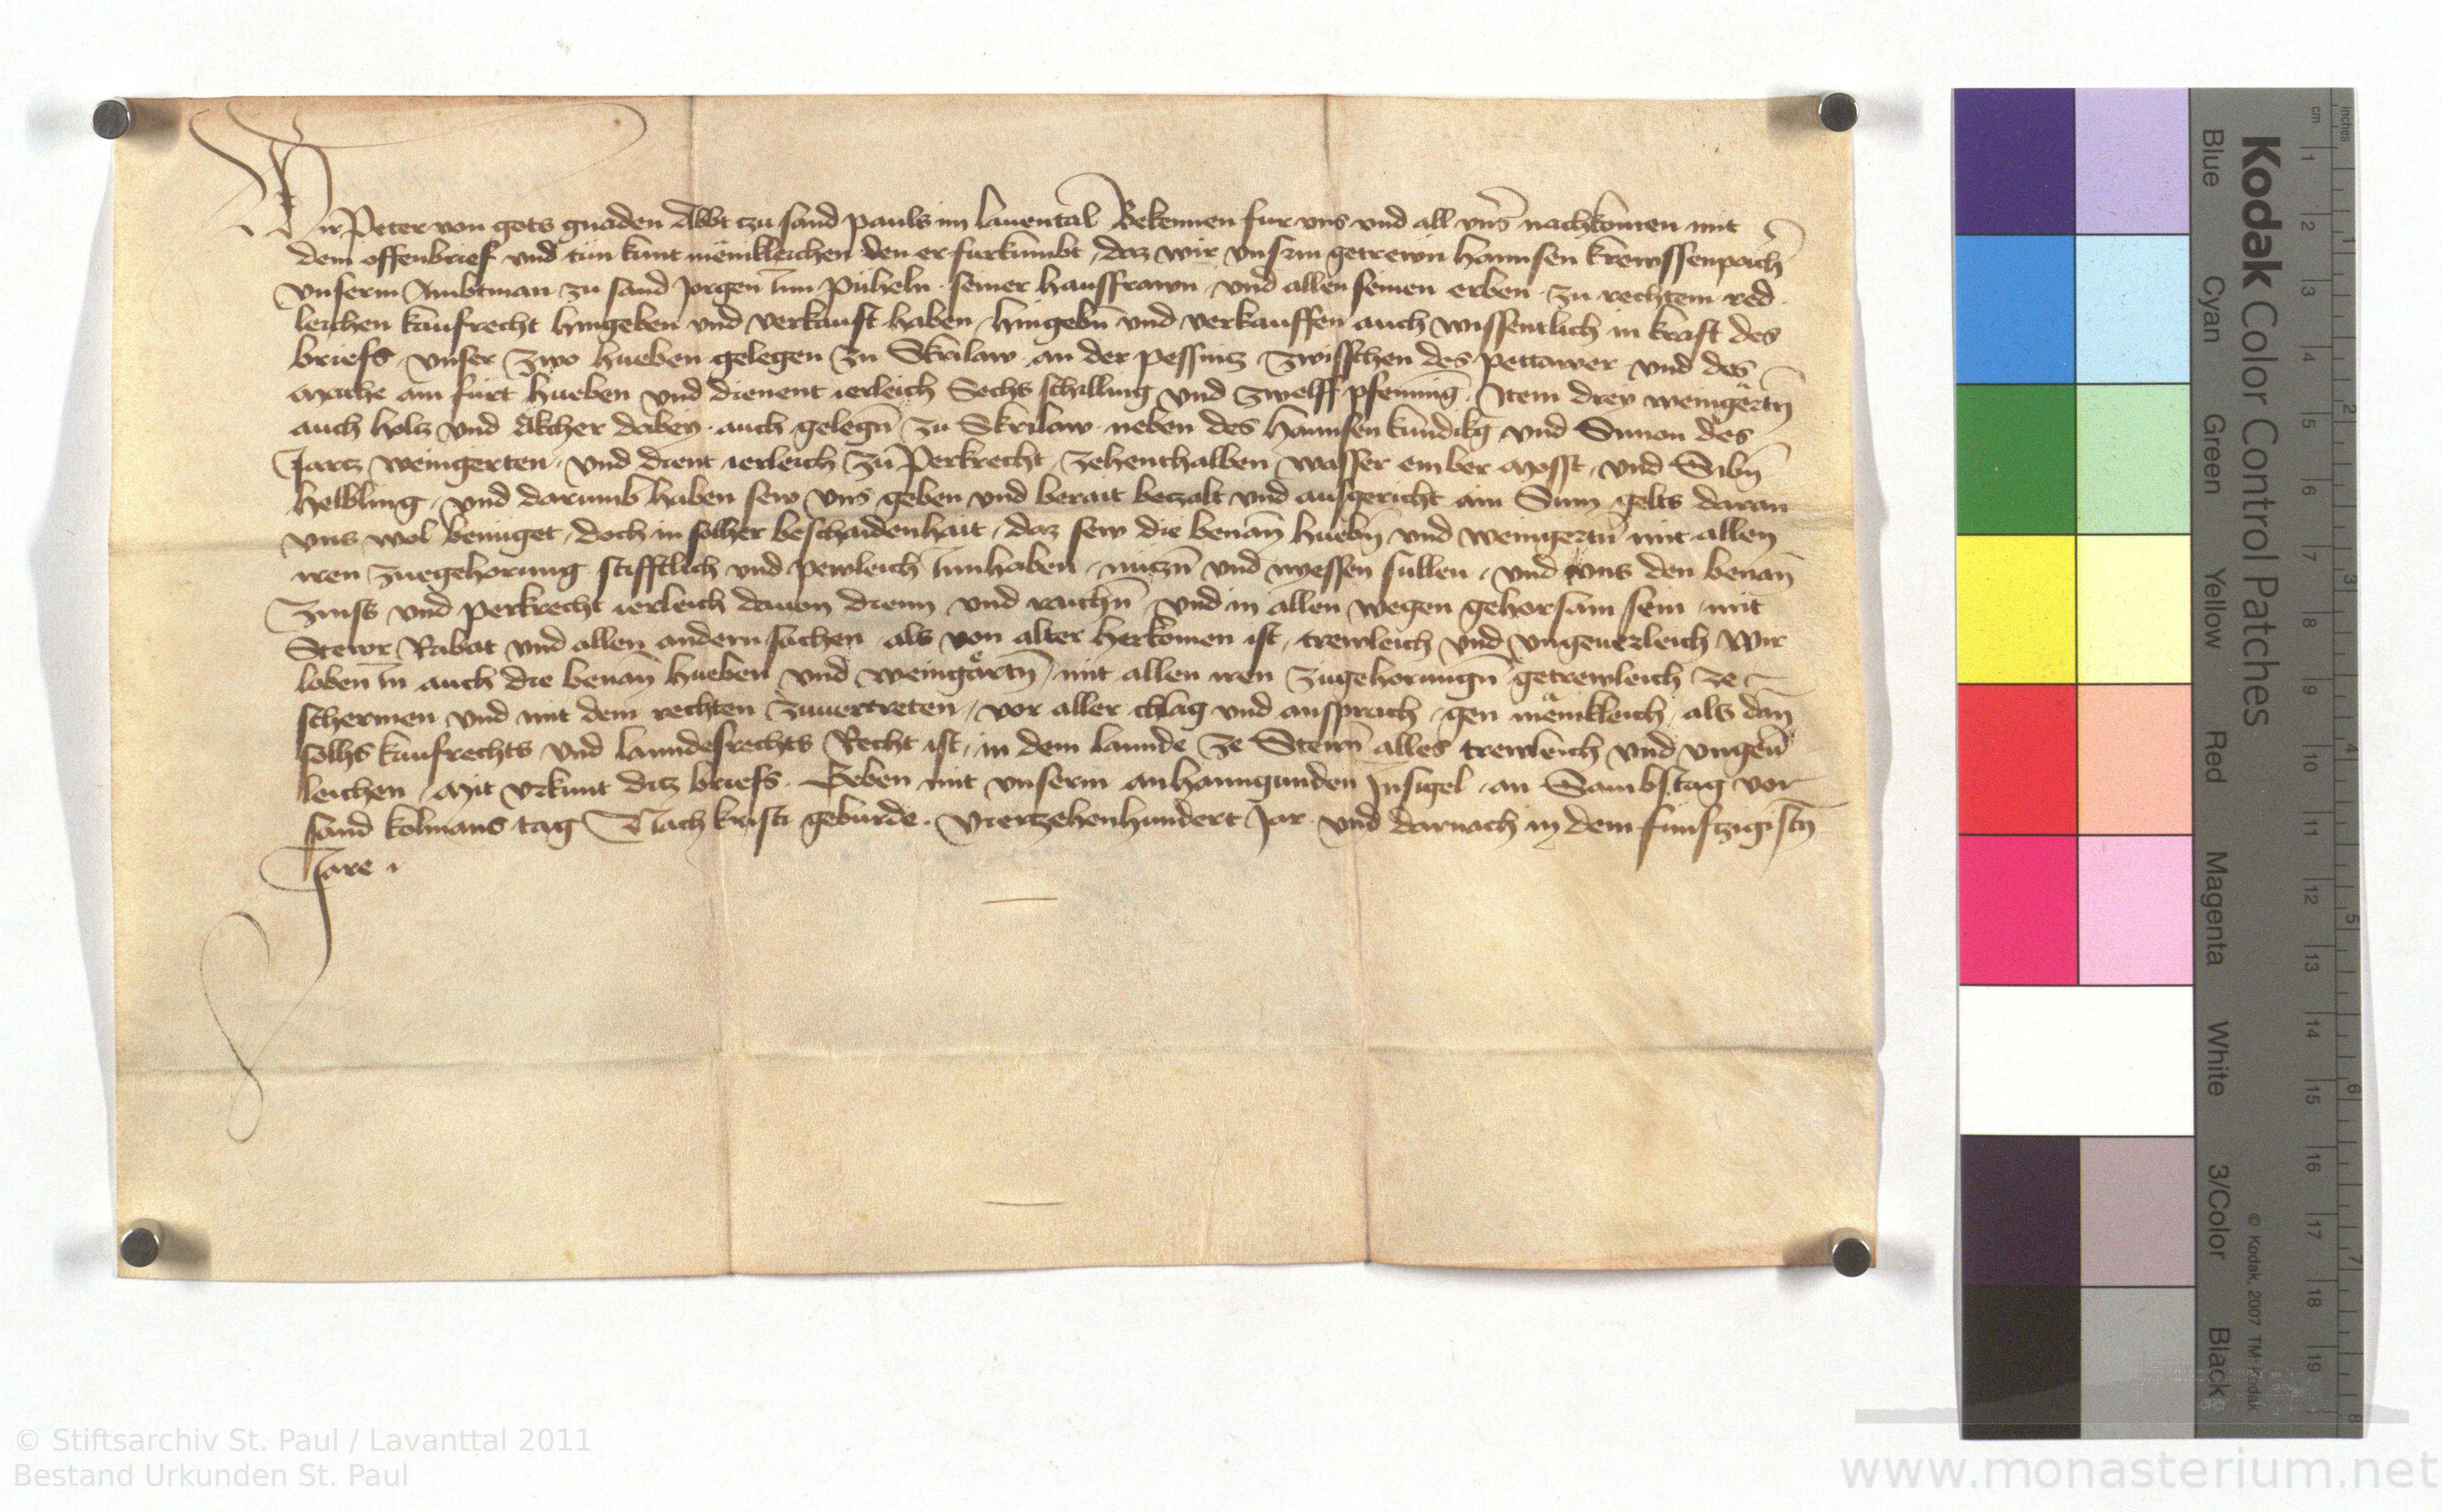 Wir Peter von gots gnaden Abbt czu sand pauls im lauental Bekennen fur vns vnd all vnser nachkomen mit
dem offenbrief vnd tün kunt menikleichen den er furkumbt, daz wir vnserm getrewn hannsen krewssenpach
vnserm Ambtman zu sand Jorgen Inn Püheln seiner hausfrawn vnd allen seinen erben zu rechtem red
leichen kaufrecht hingeben vnd verkauft haben, hingebn̄ vnd verkauffen auch wissentlich in kraft des
briefs, vnser zwo hueben gelegen zu Skrilaw an der pessnitz zwisschen des pettawer vnd des
am furt hueben vnd dienent ierleich Sechs schilling vnd zwelff pfening. Item drey weingërtn̄
auch holtz vnd Akcher dabey auch gelegn̄ zu Skrilaw neben des hannsen kundikg vnd Simon des
Jartz weingerten, vnd dient ierleich zu Perkrecht, zehenthalben wasser ember Mosst, vnd Sibn̄
helbling, vnd darumb haben sew vns geben vnd berait betzalt vnd ausgericht ain Sum gelts daran
vns wol benüget, doch in solher beschaidenhait, daz sew die benan̄ huebn̄ vnd weingertn̄ mit allen
iren zuegehorung stifftlich vnd pewleich Innhaben, nüczn̄ vnd nyessen sullen, vnd vns den benan̄
zinss vnd perkrecht ierleich dauon dienn vnd raichn̄ vnd in allen wegen gehorsam sein, mit
Stewr Rabat vnd allen andern sachen als von alter herkomen ist, trewleich vnd vngeuerleich Wir
loben In auch die benan̄ hueben vnd weingartn̄, mit allen iren zugehorungn̄ getrewleich ze
schermen vnd mit dem rechten zuuertreten, vor aller chlag vnd ansprach, gen mënikleich, als dan̄
solhs kaufrechts vnd lanndesrechts Recht ist, in dem lannde ze Steir̄ alles trewleich vnd vngeu̇
leichen, Mit vrkunt ditz briefs. Geben mit vnserm anhanngunden Insigel, an Sambstag vor
sand kolmans tag Nach kristi geburde. Viertzehenhundert Jar vnd darnach in dem funftzigistn̄
Jare
Kodak Color Control Patches
Blue Cyan Green Yellow Red Magenta White 3/Color Black
© Kodak, 2007 TM: Kodak
cm 1 2 3 4 5 6 7 8 9 10 11 12 13 14 15 16 17 18 19
inches 1 2 3 4 5 6 7 8
© Stiftsarchiv St. Paul / Lavanttal 2011
Bestand Urkunden St. Paul
www.monasterium.net